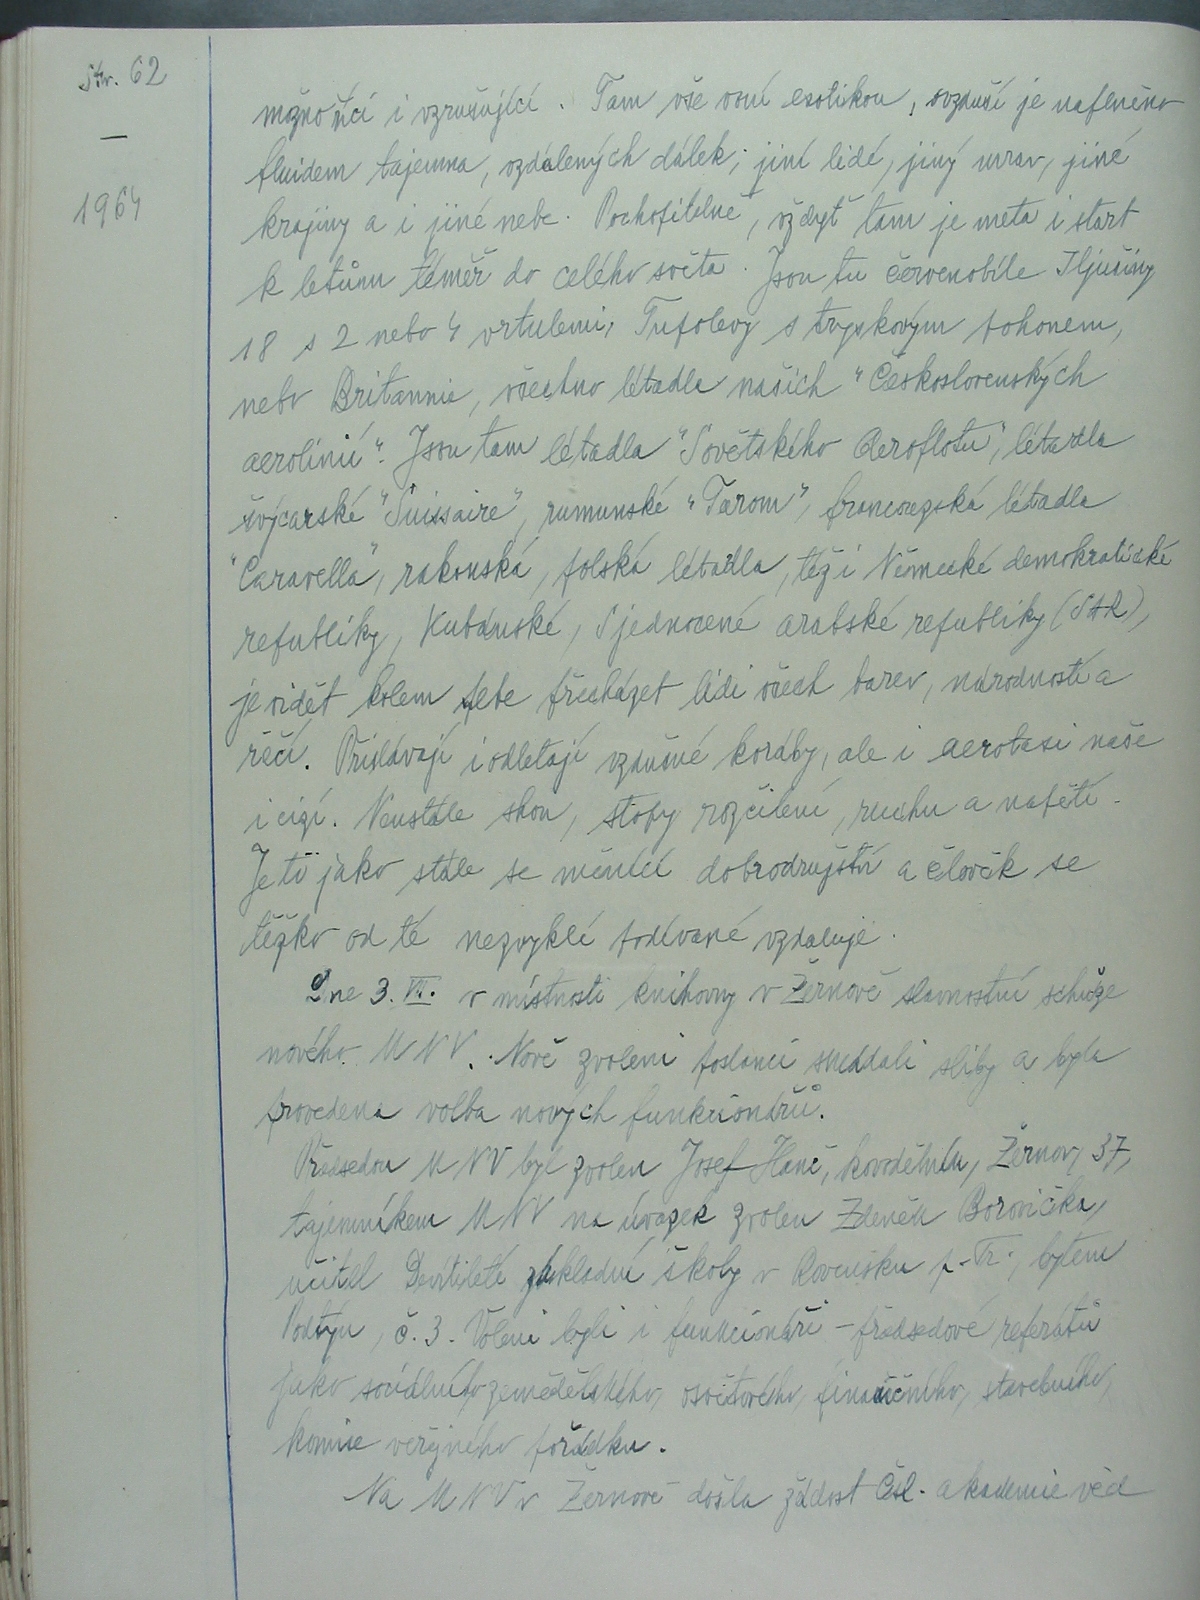 Str. 62
—
1964
možno říci i vzrušující. Tam vše voní esotikou, ovzduší je naplněno
fluidem tajemna, vzdálených dálek; jiní lidé, jiný mrav, jiné
krajiny a i jiné nebe. Pochopitelně, vždyť tam je meta i start
k letům téměř do celého světa. Jsou tu červenobíle Iljušiny
18 s 2 nebo 4 vrtulemi, Tupolevy s tryskovým pohonem,
nebo Britannie, všechno letadla našich "Československých
aerolinií". Jsou tam létadla "Sovětského Aeroflotu", létadla
švýcarské "Suissaire", rumunské "Tarom", francouzská létadla
"Caravella", rakouská, polská létadla, též i Německé demokratické
republiky, Kubánské, Sjednocené arabské republiky (SAR),
je vidět kolem sebe přecházet lidi všech barev, národností a
řečí. Přilétávají i odletají vzdušné koráby, ale i aerotaxi naše
i cizí. Neustále shon, stopy rozčilení, ruchu a napětí.
Je tě jako stále se měnící dobrodružství a člověk se
těžko od té nezvyklé podívané vzdaluje.
Dne 3. VII. v místnosti knihovny v Žernově slavnostní schůze
nového MNV. Nově zvolení poslanci skládali sliby a byla
provedena volba nových funkcionářů.
Předsedou MNV byl zvolen Josef Hanč, kovodělník, Žernov, 37,
tajemníkem MNV na úvazek zvolen Zdeněk Borovička,
učitel Devítileté základní školy v Rovensku p. Tr., bytem
Podtýn, č. 3. Voleni byli i funkcionáři – předsedové referátů
jako sociálního, zemědělského, osvětového, finančního, stavebního,
komise veřejného pořádku.
Na MNV v Žernově došla žádost Čsl. akademie věd